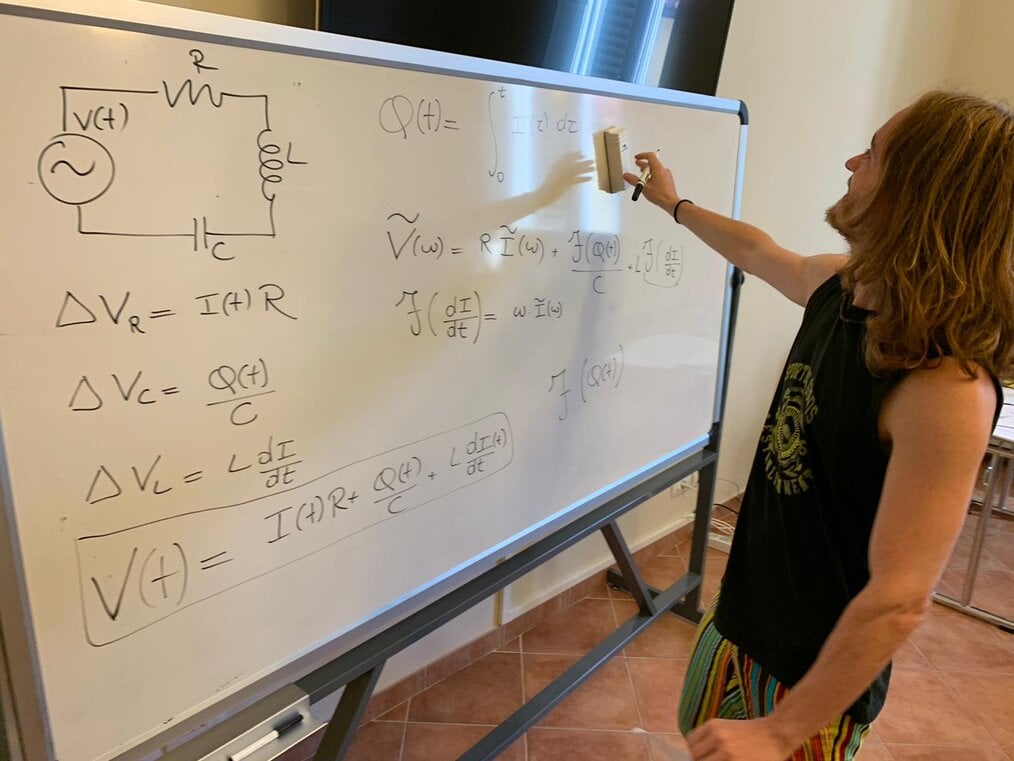 R
V(t)
L
C
ΔV_R = I(t) R
ΔV_C = Q(t)/C
ΔV_L = L dI/dt
V(t) = I(t)R + Q(t)/C + L dI(t)/dt
Q(t) = ∫_0^t I(τ) dτ
Ṽ(ω) = R Ĩ(ω) + ℱ(Q(t))/C + Lℱ(dI/dt)
ℱ(dI/dt) = ω·Ĩ(ω)
ℱ(Q(t))